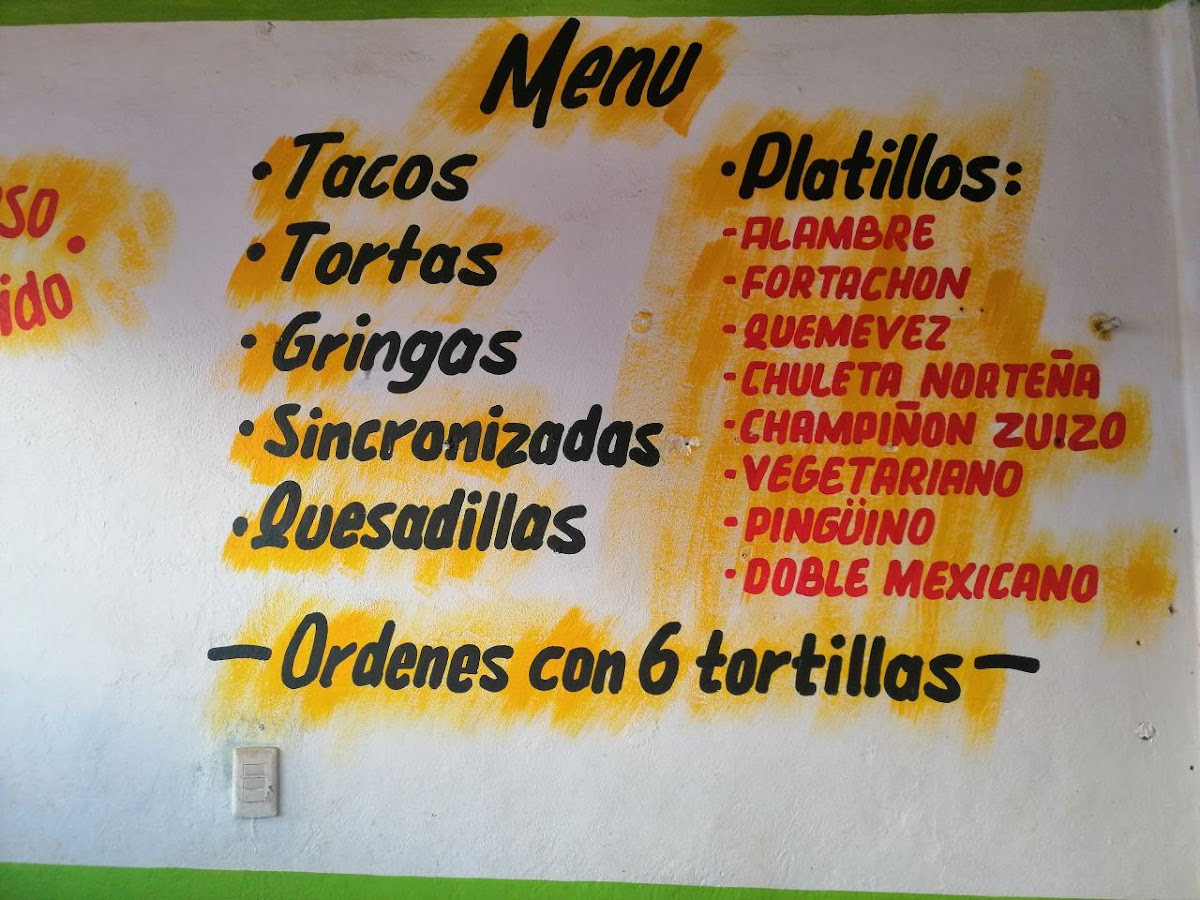 Menu
• Tacos
• Tortas
• Gringas
• Sincronizadas
• Quesadillas
• Platillos:
- ALAMBRE
- FORTACHON
- QUEMEVEZ
- CHULETA NORTEÑA
- CHAMPIÑON ZUIZO
- VEGETARIANO
- PINGÜINO
- DOBLE MEXICANO
— Ordenes con 6 tortillas —